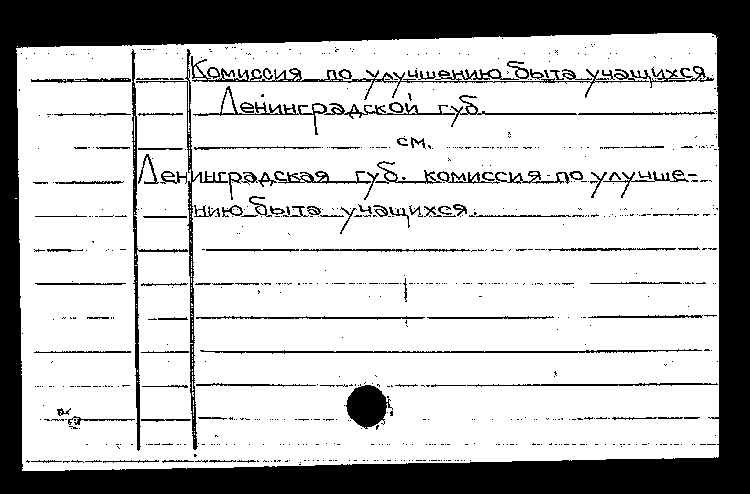 Комиссия по улучшению быта учащихся
Ленинградской губ.
см.
Ленинградская губ. комиссия по улучше-
нию быта учащихся.